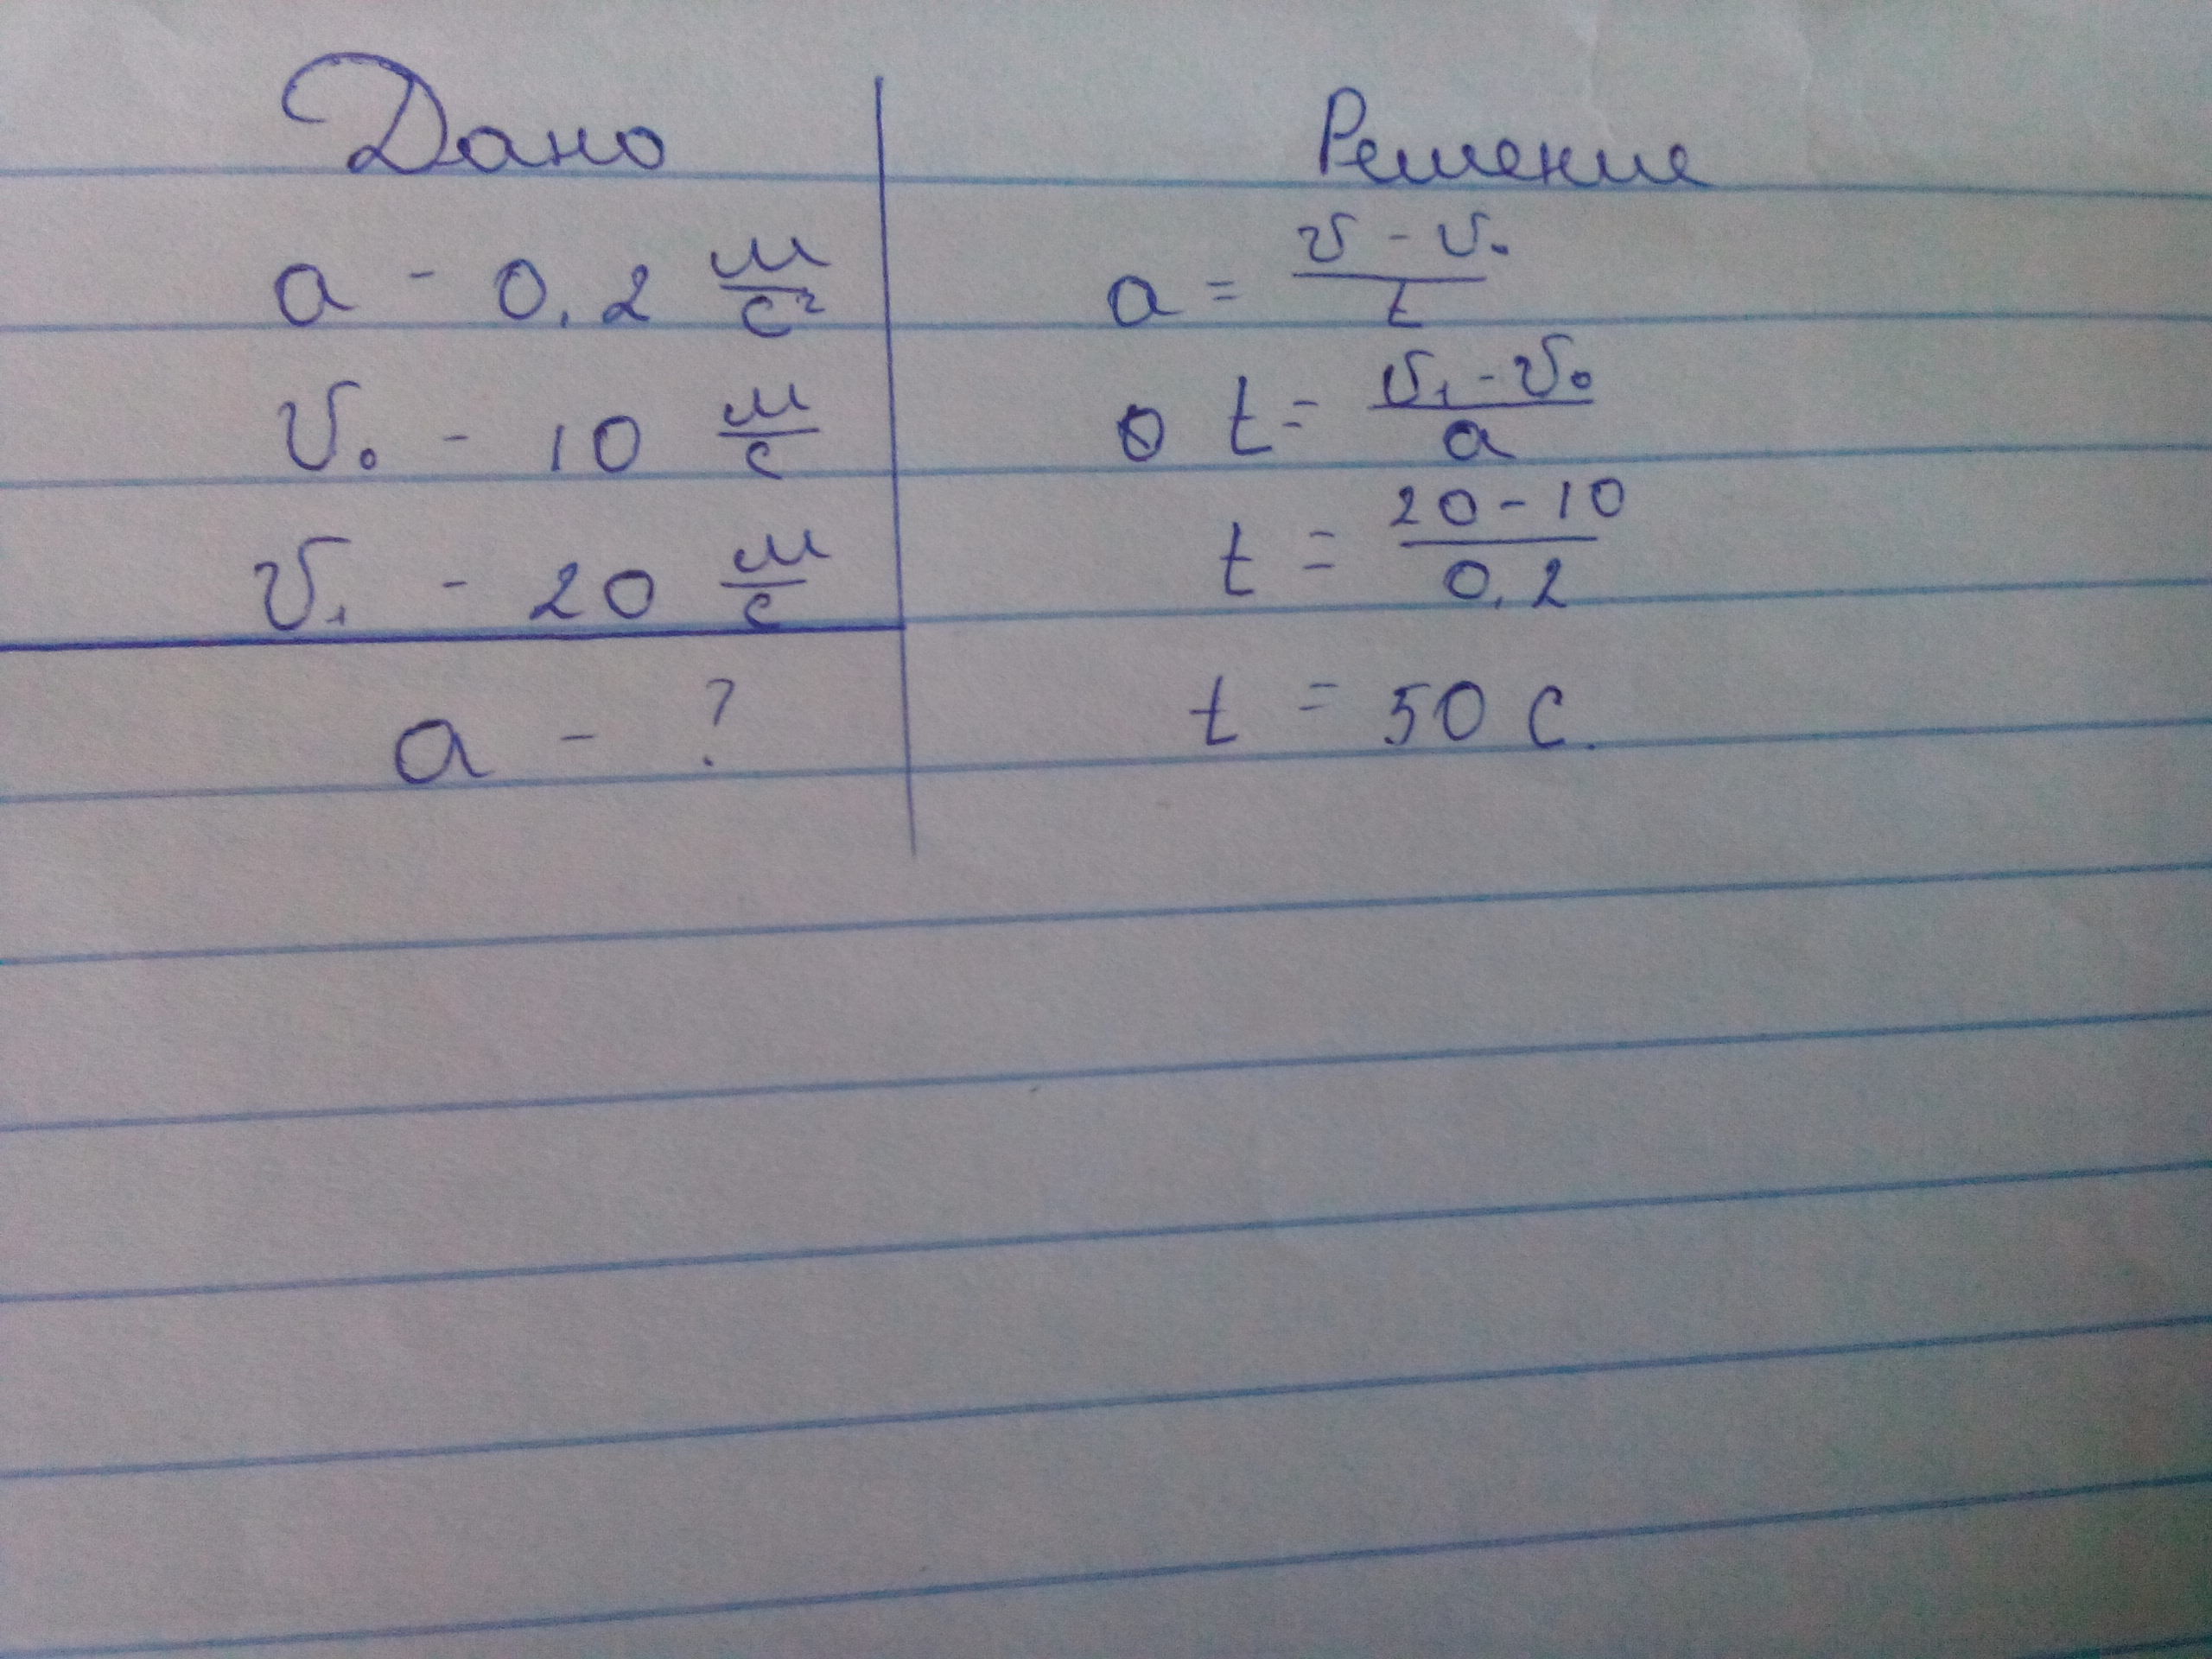 Дано
a - 0.2 м/с²
v₀ - 10 м/с
v₁ - 20 м/с
a - ?
Решение
a = (v - v₀)/t
0 t = (v₁ - v₀)/a
t = (20 - 10)/0.2
t = 50 с.